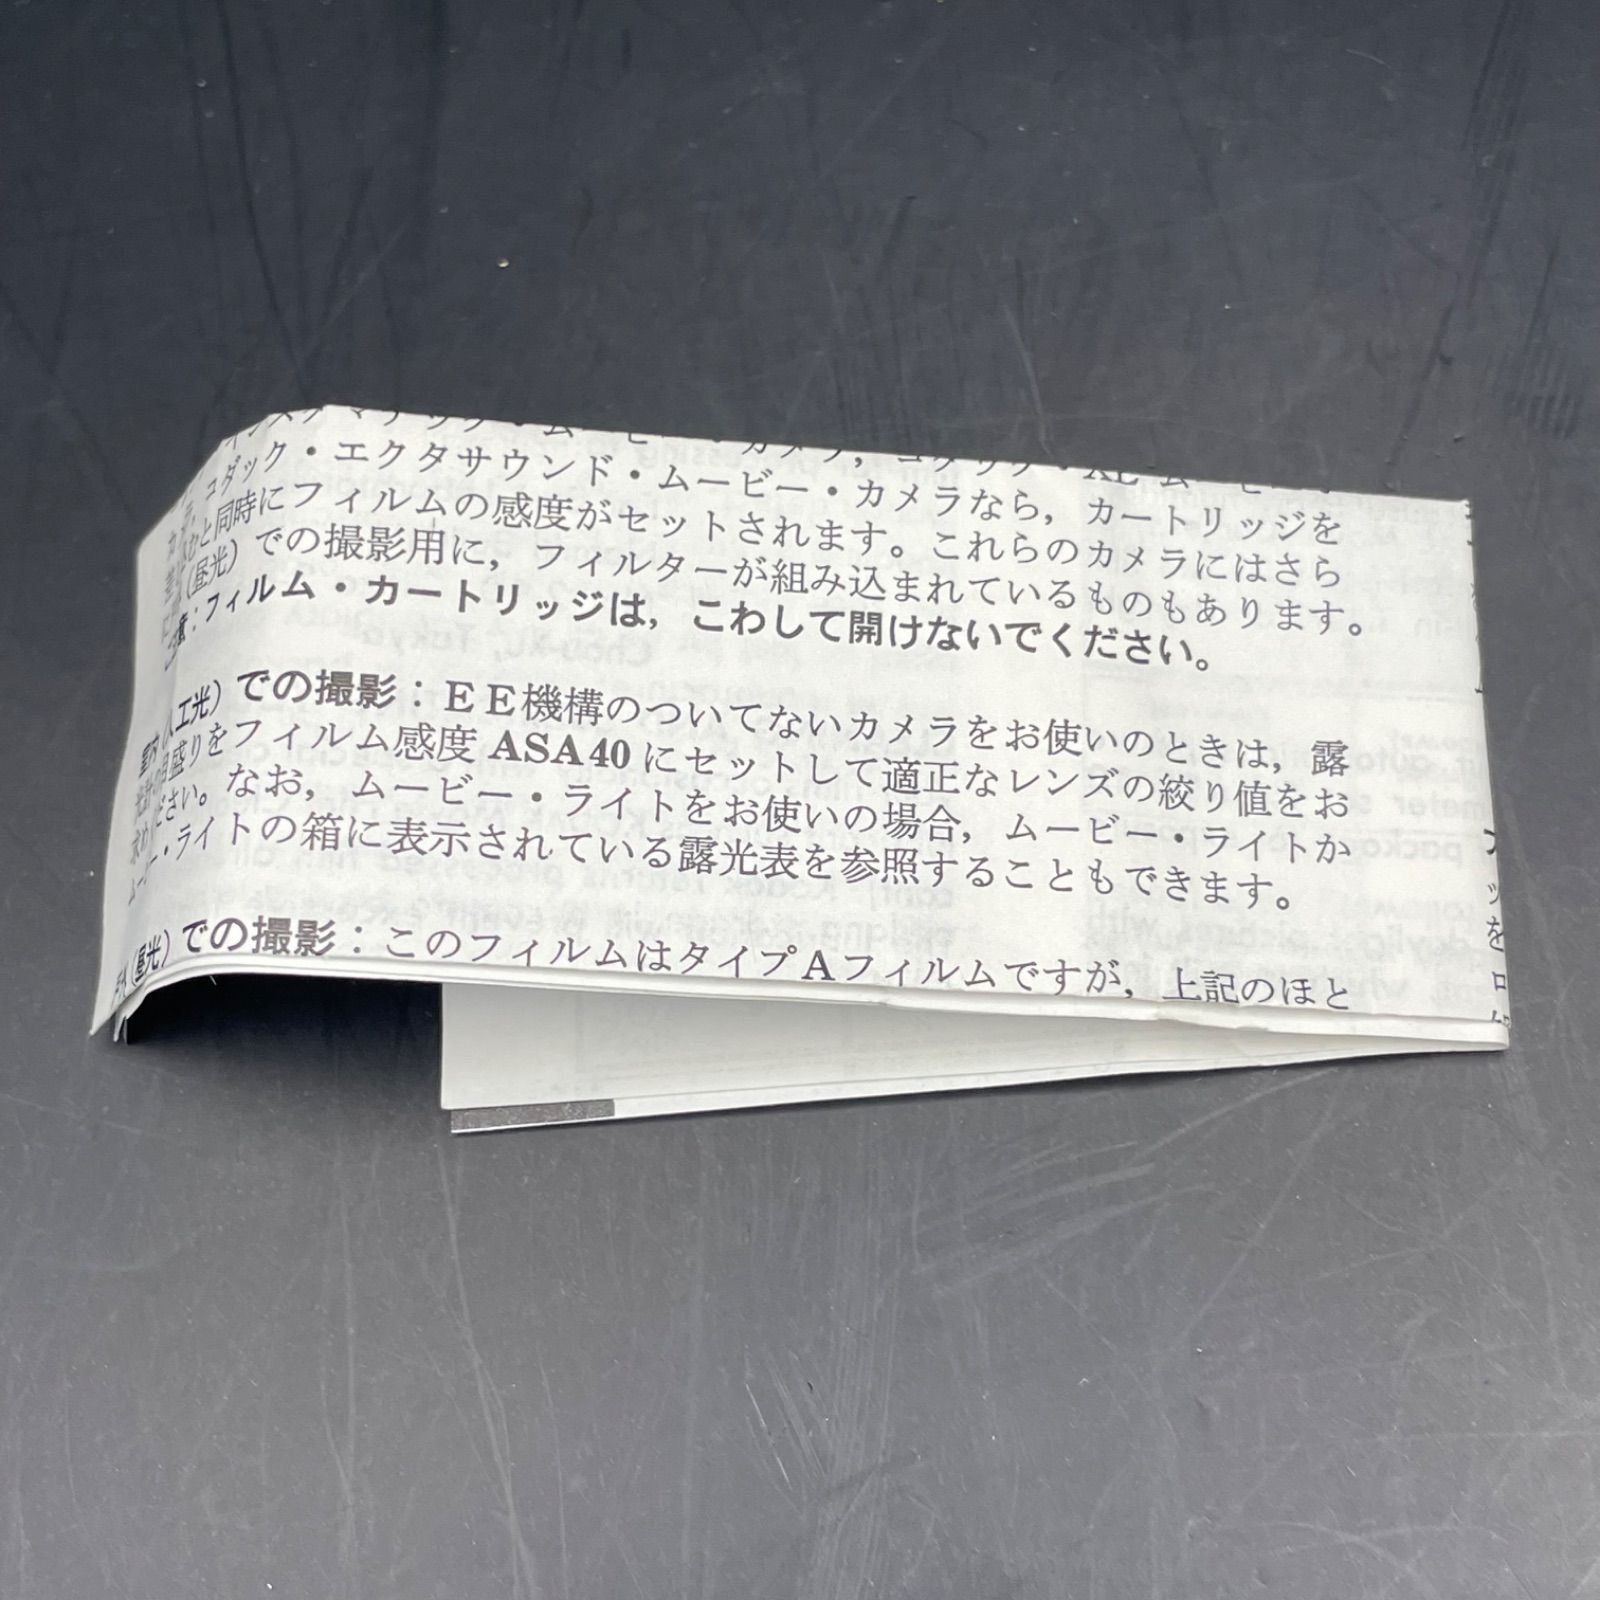 コダック・エクタサウンド・ムービー・カメラなら，カートリッジを
むと同時にフィルムの感度がセットされます。これらのカメラにはさら
（昼光）での撮影用に，フィルターが組み込まれているものもあります。
意：フィルム・カートリッジは，こわして開けないでください。
（人工光）での撮影：ＥＥ機構のついてないカメラをお使いのときは，露
の目盛りをフィルム感度ASA40にセットして適正なレンズの絞り値をお
ださい。なお，ムービー・ライトをお使いの場合，ムービー・ライトか
ムービー・ライトの箱に表示されている露光表を参照することもできます。
（昼光）での撮影：このフィルムはタイプAフィルムですが，上記のほと